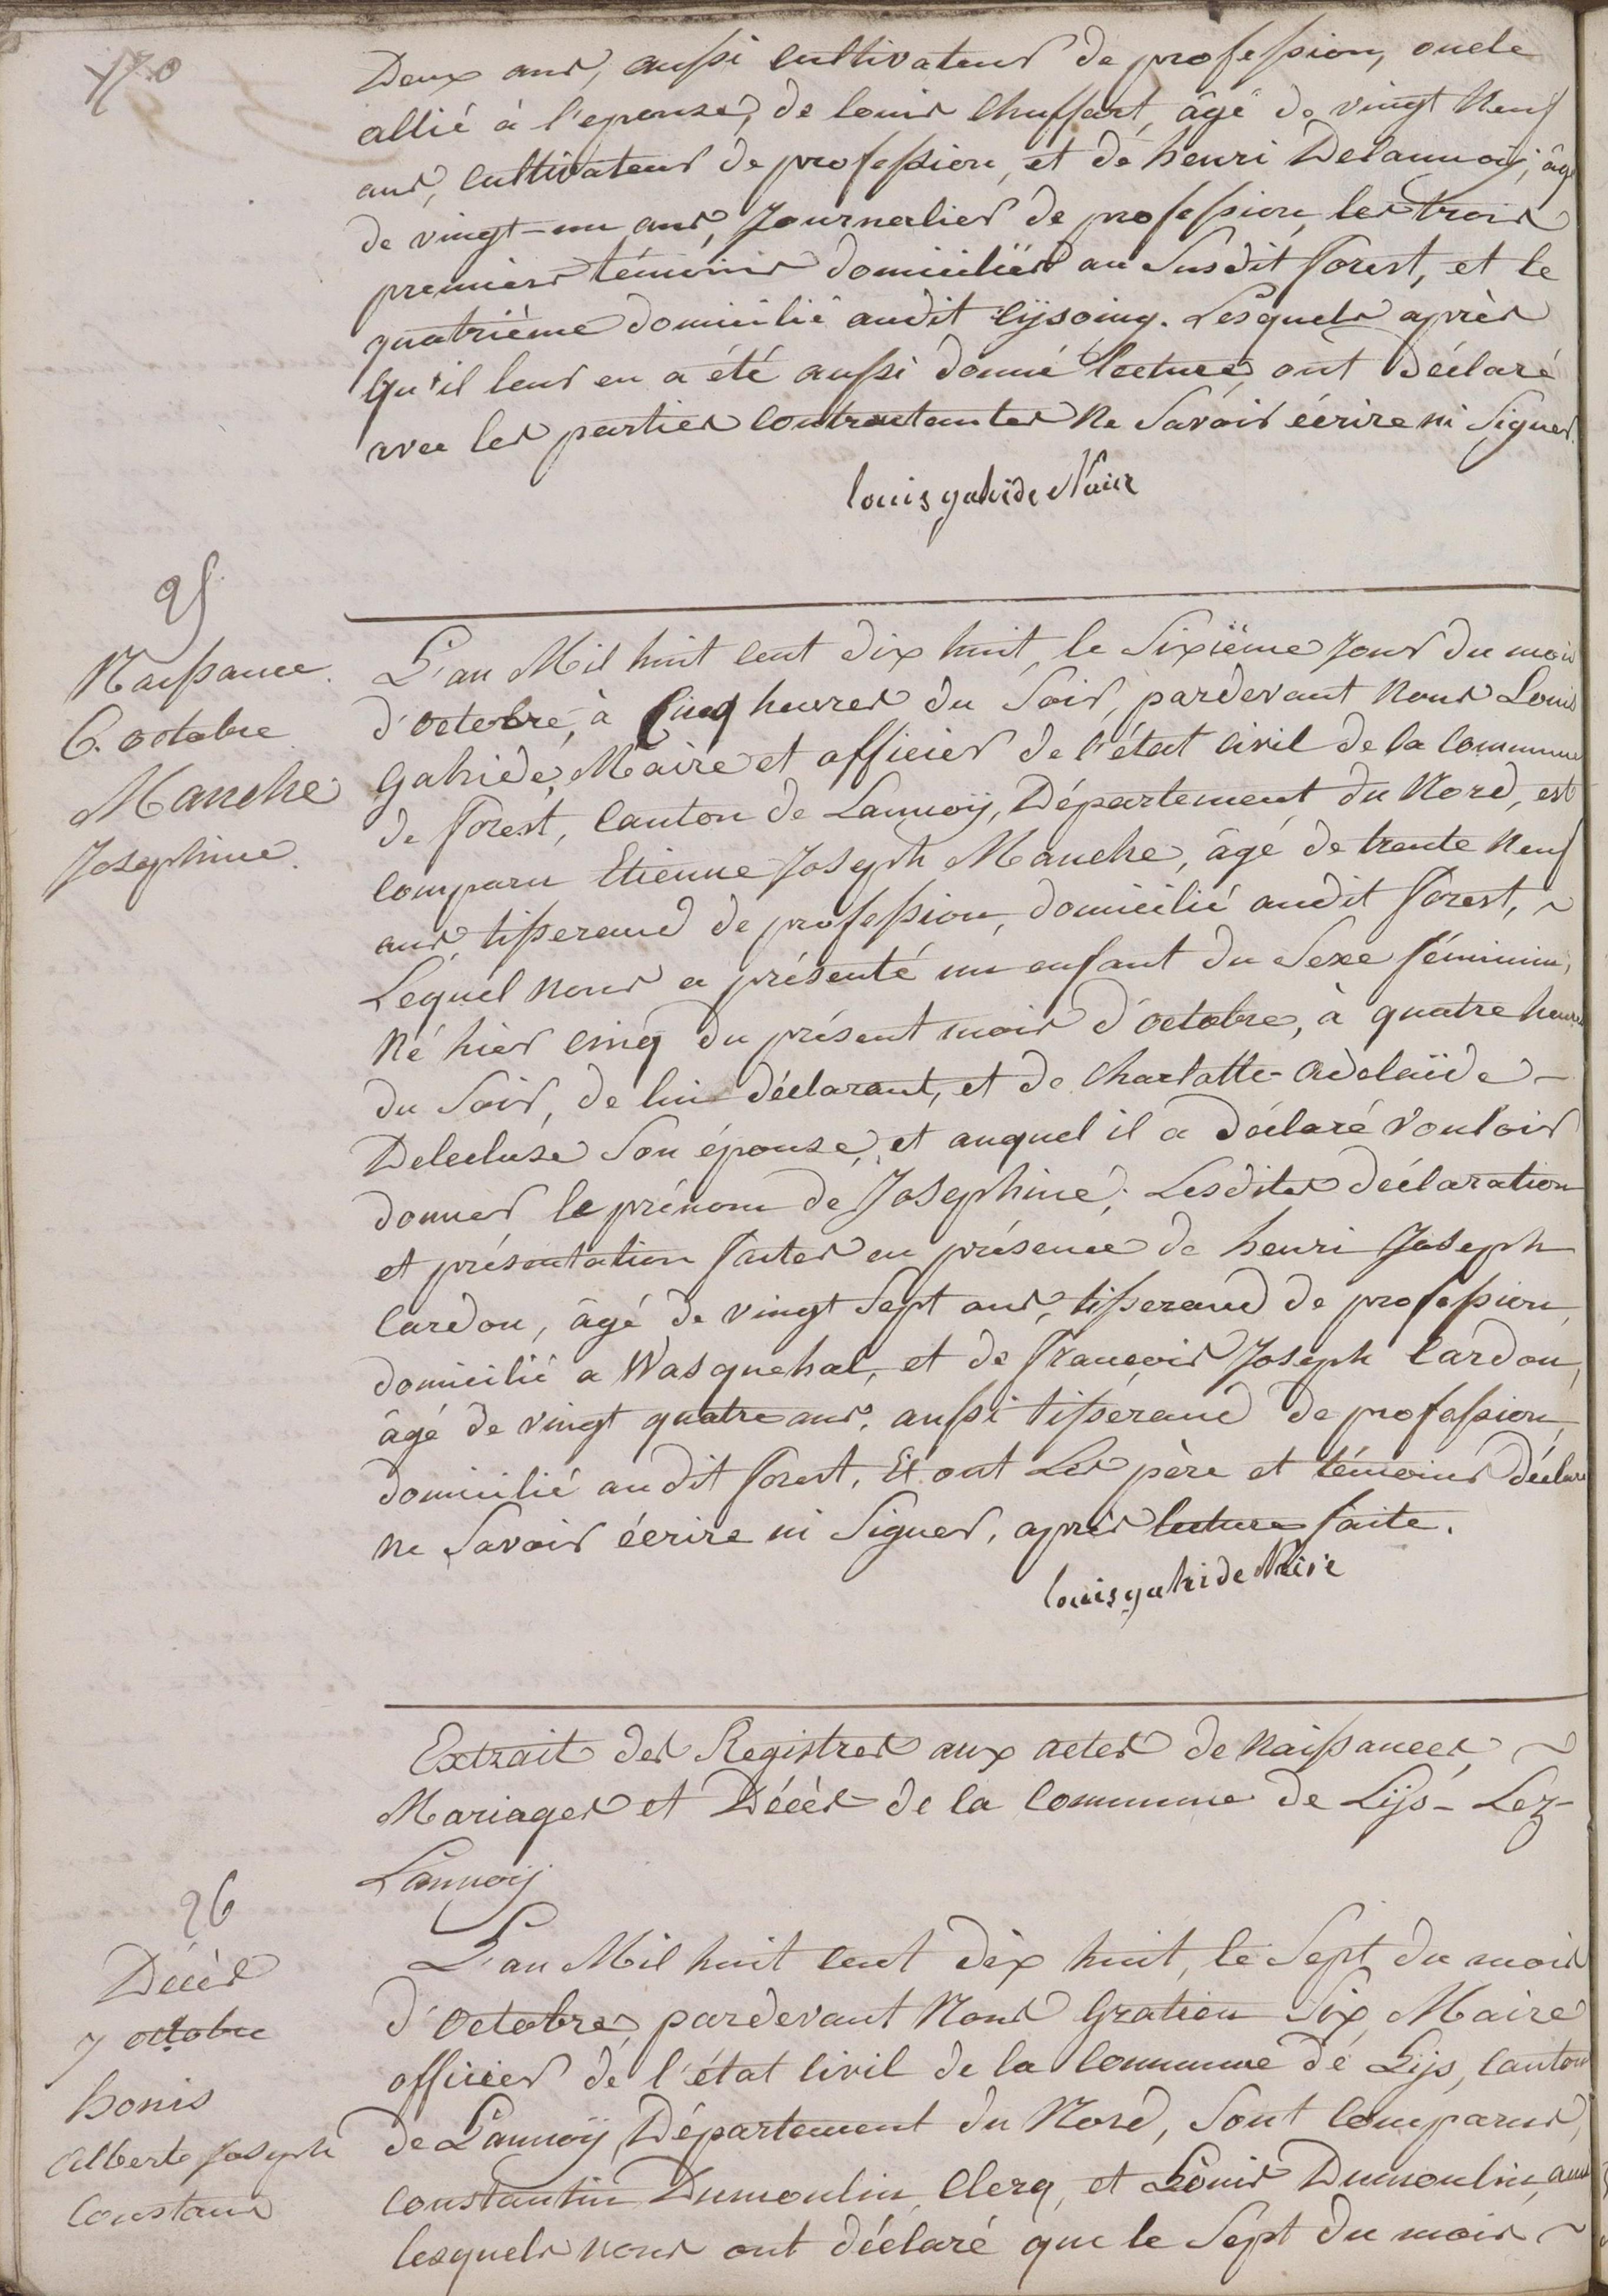 170
Deux ans, aussi cultivateur de profession, oncle
allié à l'epouse, de louis Chuffart, âgé de vingt Neuf
ans, cultivateur de profession, et de henri Delannoij, âgé
de vingt-un ans, Journalier de profession, les trois
premiers témoins domiciliés au Susdit forest, et le
quatrième domicilié audit Cijsoing. Lesquels après
qu'il leur en a été aussi donné lecture, ont Déclaré
avec les parties contractantes Ne Savoir écrire ni Signer.
louis gahide Maire
25
Naissance
6. octobre
Manche
Josephine.
L'an Mil huit cent dix huit, le Sixième Jour du mois
d'octobre, à Cinq heures du Soir, pardevant Nous Louis
Gahide, Maire et officier de l'état civil de la commune
de forest, Canton de Lannoÿ, Département du Nord, est
comparu Etienne Joseph Manche, âgé de trente Neuf
ans, tisserand de profession, domicilié audit forest, ~
Lequel Nous a présenté un enfant du Sexe féminin,
Né hier cinq du présent mois d'octobre, à quatre heures
du Soir, de lui déclarant, et de Charlotte-Adelaïde -
Delecluse Son épouse, et auquel il a déclaré Vouloir
donner le prénom de Josephine; Lesdites déclaration
et présentation faites en présence de henri Joseph
Cardon, âgé de vingt Sept ans, tisserand de profession,
domicilié a Wasquehal, et de François Joseph Cardon,
âgé de vingt quatre ans, aussi tisserand de profession,
domicilié audit forest, Et ont Les père et témoins déclaré
ne Savoir écrire ni Signer, après lecture faite.
louis gahide Maire
Extrait des Registres aux actes de Naissances, ~
Mariages et Décès de la Commune de Lijs-Lez-
Lannoij
26
Décès
7 octobre
honis
Alberte Joseph
Constand
L'an Mil huit cent dix huit, le Sept du mois
d'octobre, pardevant Nous Gratien Six, Maire
officier de l'état Civil de la Commune de Lijs, Canton
de Lannoÿ, Département du Nord, Sont Comparus,
Constantin Dumoulin, Clerq, et Louis Dumoulin,
lesquels nous ont déclaré que le Sept du mois ~